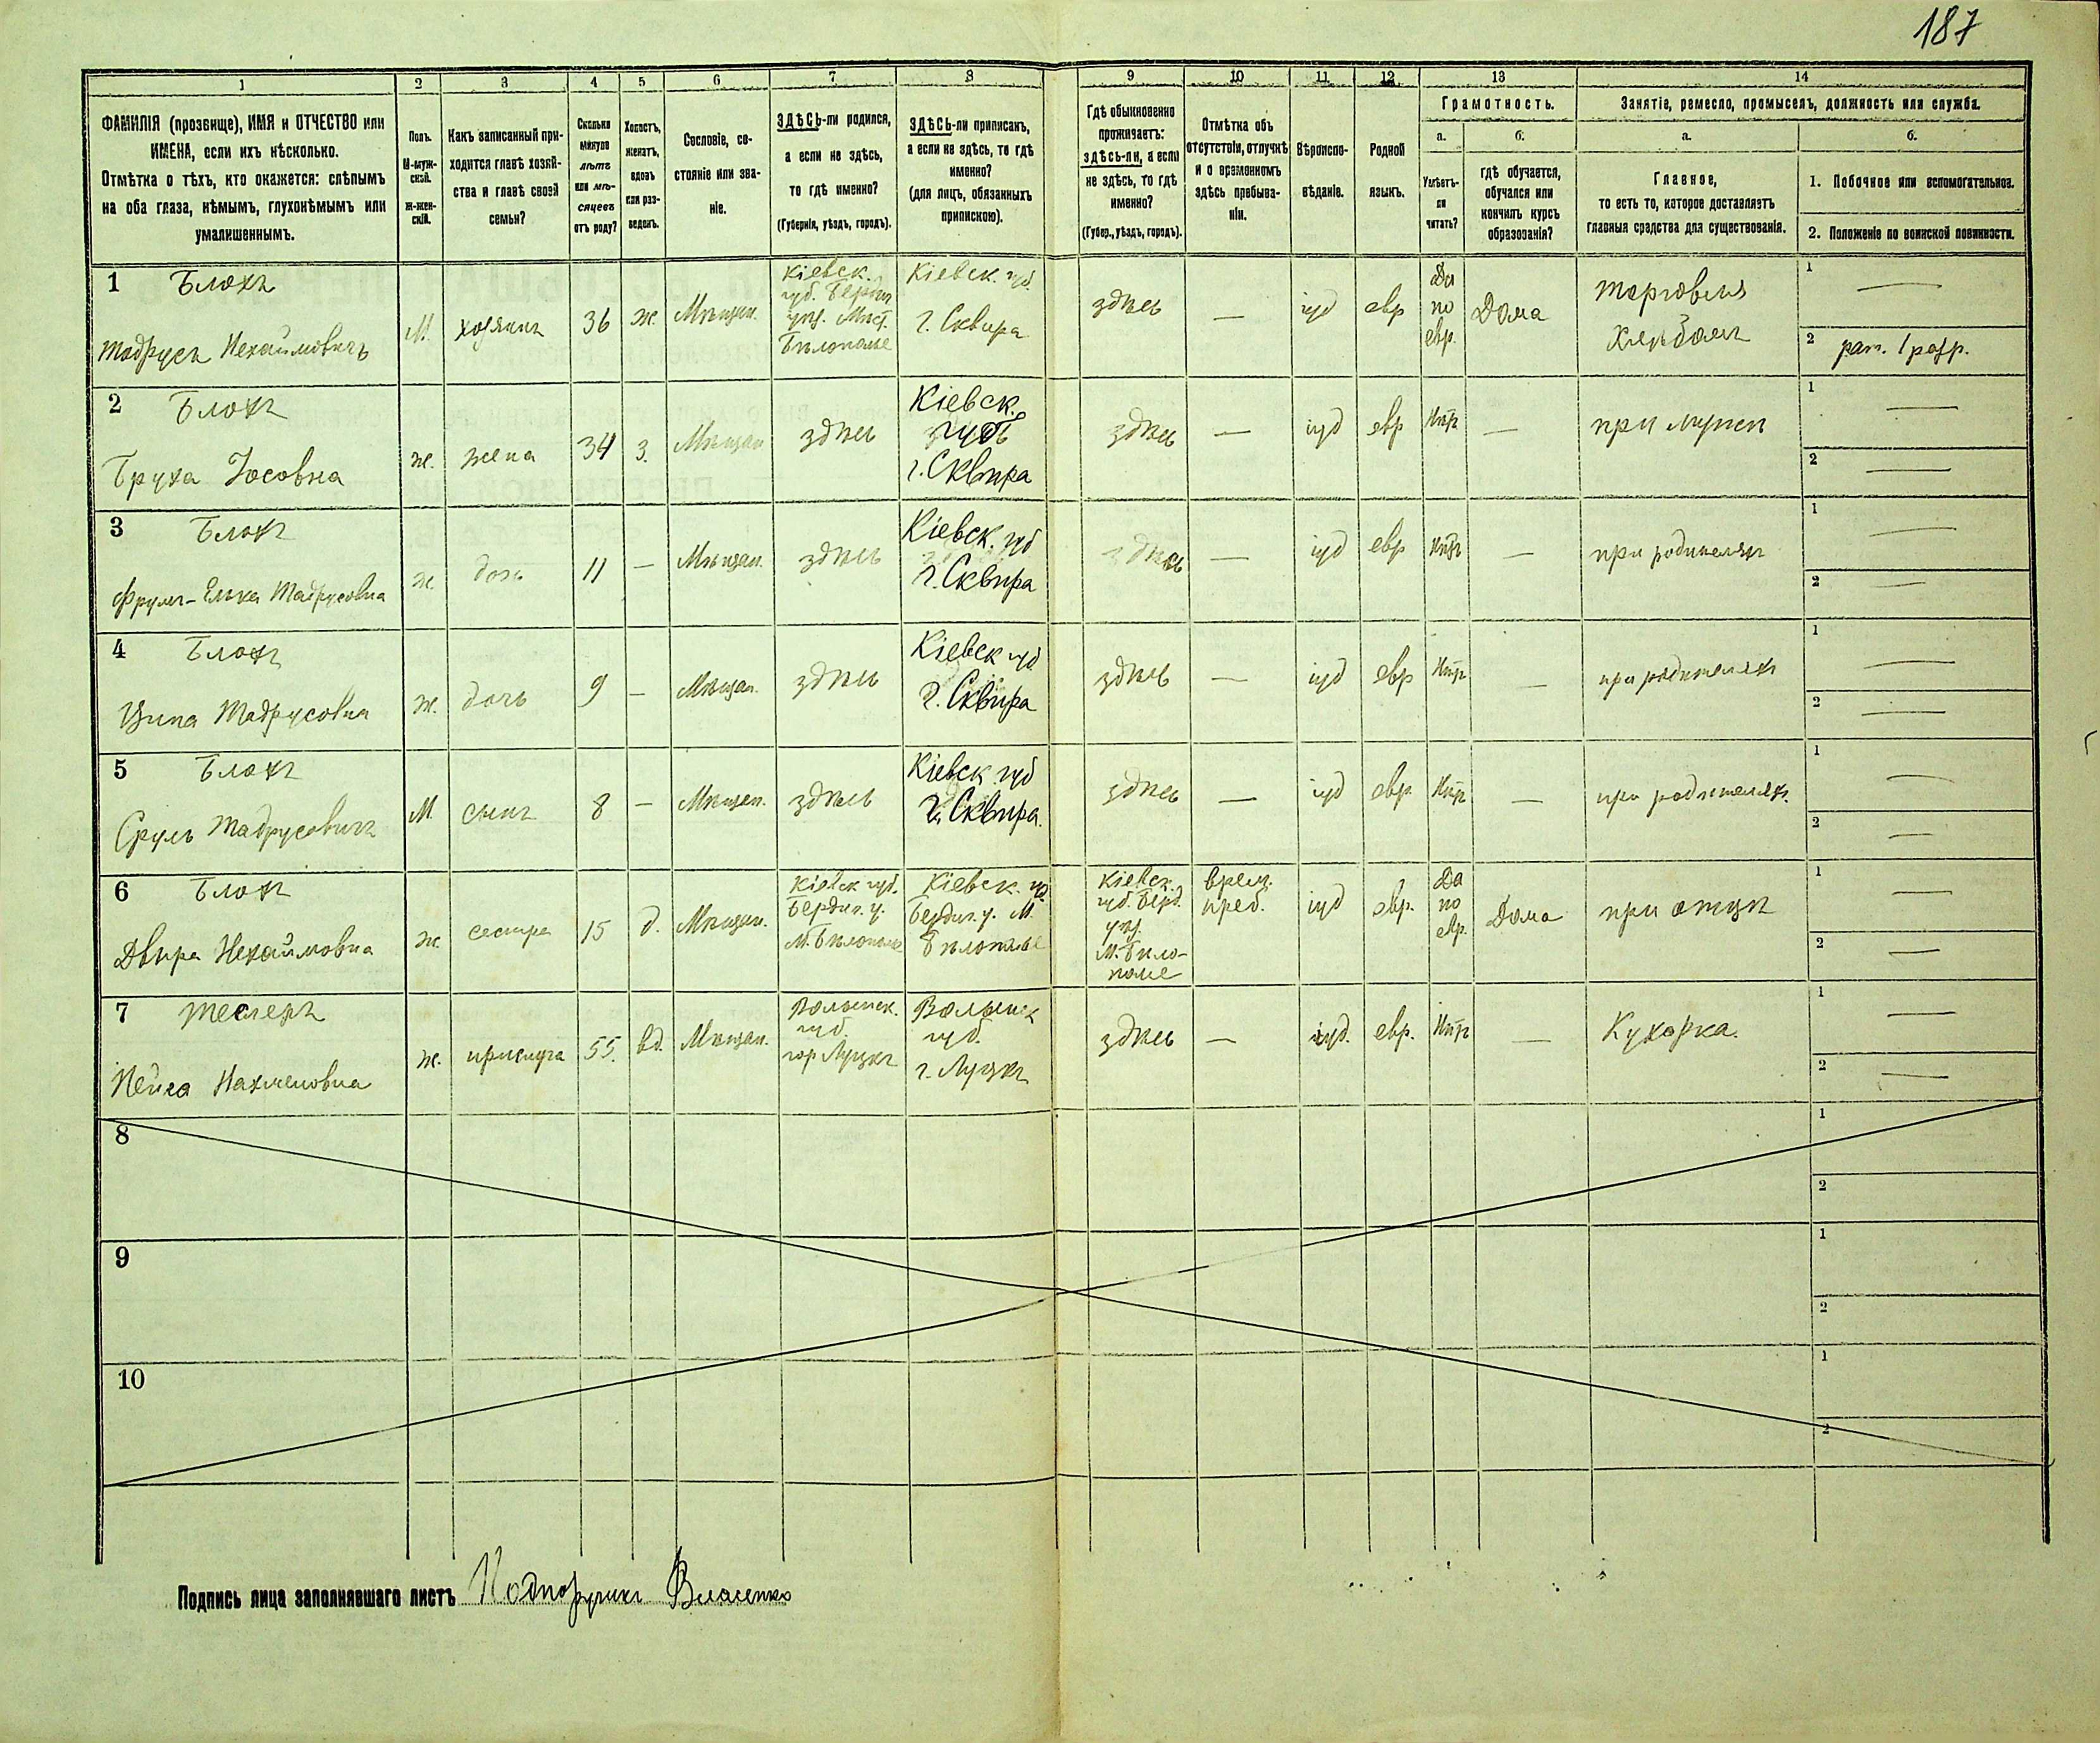 187
1 2 3 4 5 6 7 8 9 10 11 12 13 14
ФАМИЛІЯ (прозвище), ИМЯ и ОТЧЕСТВО или
ИМЕНА, если ихъ нѣсколько.
Отмѣтка о тѣхъ, кто окажется: слѣпымъ
на оба глаза, нѣмымъ, глухонѣмымъ или
умалишеннымъ.
Полъ.
М-муж-
ской.
Ж-жен-
скій.
Какъ записанный при-
ходится главѣ хозяй-
ства и главѣ своей
семьи?
Сколько
минуло
лѣтъ
или мѣ-
сяцевъ
отъ роду?
Холостъ,
женатъ,
вдовъ
или раз-
веденъ.
Сословіе, со-
стояніе или зва-
ніе.
ЗДѢСЬ-ли родился,
а если не здѣсь,
то гдѣ именно?
(Губернія, уѣздъ, городъ).
ЗДѢСЬ-ли приписанъ,
а если не здѣсь, то гдѣ
именно?
(для лицъ, обязанныхъ
припискою).
Гдѣ обыкновенно
проживаетъ:
здѣсь-ли, а если
не здѣсь, то гдѣ
именно?
(Губер., уѣздъ, городъ).
Отмѣтка объ
отсутствіи, отлучкѣ
и о временномъ
здѣсь пребыва-
ніи.
Вѣроиспо-
вѣданіе.
Родной
языкъ.
Грамотность.
а. б.
Умѣетъ-
ли
читать?
гдѣ обучается,
обучался или
кончилъ курсъ
образованія?
Занятіе, ремесло, промыселъ, должность или служба.
а. б.
Главное,
то есть то, которое доставляетъ
главныя средства для существованія.
1. Побочное или вспомогательное.
2. Положеніе по воинской повинности.
1 Блохъ
Тодрусъ Нехаймовичъ
М.
хозяинъ
36
ж.
Мѣщан.
Кіевск.
губ. Бердич
уѣз. Мѣст.
Бѣлополье
Кіевск. губ.
г. Сквира
здѣсь
—
іуд
евр
Да
по
евр.
Дома
торговля
хлѣбомъ
1 —
2 рат. 1 разр.
2 Блохъ
Бруха Іосовна
ж.
жена
34
з.
Мѣщан
здѣсь
Кіевск.
губ
г. Сквира
здѣсь
—
іуд
евр
Нѣт
—
при мужѣ
1 —
2 —
3 Блохъ
Фрума-Елька Тодрусовна
ж
дочь
11
—
Мѣщан.
здѣсь
Кіевск. губ
г. Сквира
здѣсь
—
іуд
евр
Нѣт
—
при родителяхъ
1 —
2 —
4 Блохъ
Ципа Тодрусовна
ж.
дочь
9
—
Мѣщан.
здѣсь
Кіевск губ
г. Сквира
здѣсь
—
іуд
евр
Нѣт
—
при родителяхъ
1 —
2 —
5 Блохъ
Сруль Тодрусовичъ
М.
сынъ
8
—
Мѣщан.
здѣсь
Кіевск губ
г. Сквира.
здѣсь
—
іуд
евр
Нѣт
—
при родителяхъ.
1 —
2 —
6 Блохъ
Двира Нехаймовна
ж.
сестра
15
д.
Мѣщан.
Кіевск губ.
Бердич. у.
М. Бѣлополье
Кіевск. губ.
Бердич. у. М.
Бѣлополье
Кіевск.
губ. Берд.
уѣз.
М. Бѣло-
полье
врем.
преб.
іуд
евр.
Да
по
евр.
Дома
при отцѣ
1 —
2 —
7 Теслеръ
Пейса Нахмановна
ж.
прислуга
55.
вд.
Мѣщан.
Волынск.
губ.
гор Луцкъ
Волынск
губ.
г. Луцкъ
здѣсь
—
іуд.
евр.
Нѣт
—
Кухарка.
1 —
2 —
8
1
2
9
1
2
10
1
2
Подпись лица заполнявшаго листъ Подпоручикъ Власенко